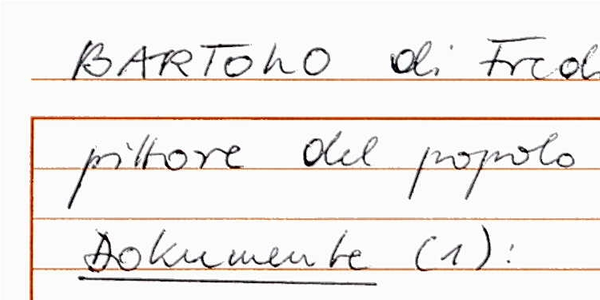 BARTOLO di Fred
pittore del popolo
Dokumente (1):